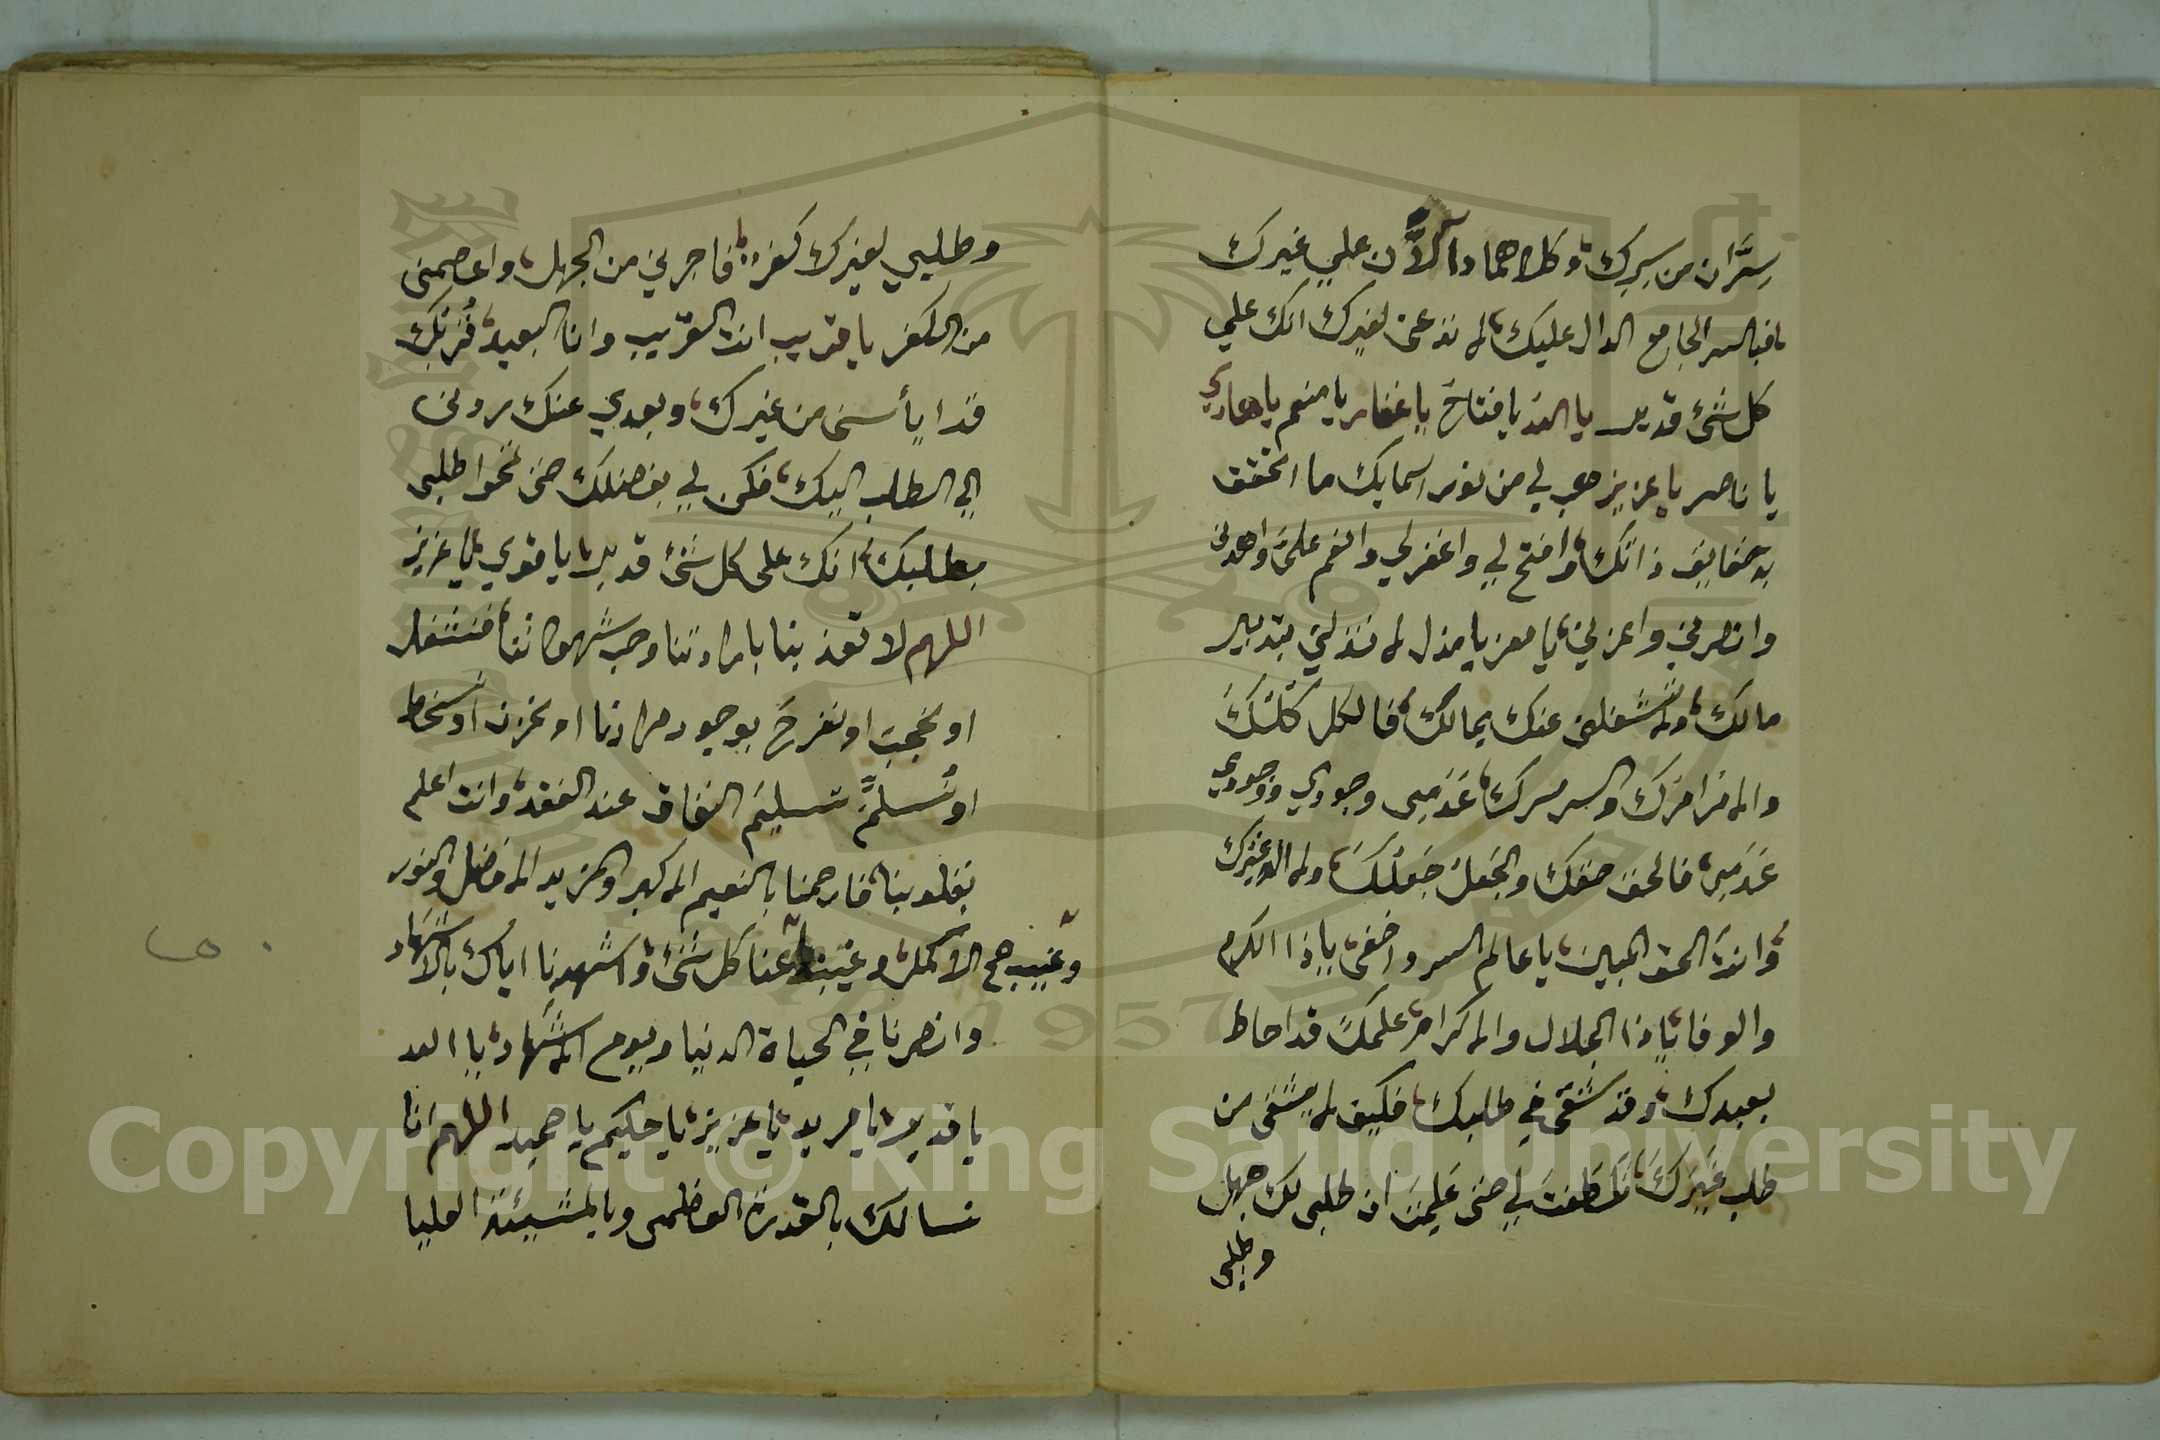 سِرَّان من سِرِك وكلاهما دالَّان علي غيرك
فبالسر الجامع الدال عليك لا تدعني لغيرك انك علي
كل شئ قدير يا الله يا فتاح يا غفار يا منعم يا هادي
يا ناصر يا عزيز هب لي من نور اسمايك ما اتحقق
به حقايق ذاتك وافتح لي واغفر لي وانعم عليَّ واهدني
وانصرني واعزني يا معز يا مذل لا تذلني بتدبير
مالك ولا تشغلني عنك بمالك فالكل كلك
والامر امرك والسر سرك عَدَمِى وجودي ووجودي
عَدَمِي فالحق حقك والجَعلُ جَعلُكَ ولا اله غيرك
وانت الحق المبين يا عالم السر واخفى يا ذا الكرم
والوفا يا ذا الجلال والاكرام علمك قد احاط
بعبدك وقد شقى في طلبك فكيف لا يشقى من
طلب غَيرَكَ تَلَطَّفتَ لي حتى عَلِمتُ ان طلبى لك جهل
وطلبى
وطلبي لغيرك كفر فاجرني من الجهل واعصمنى
من الكفر يا قريب انت القريب وانا البعيد قُربُك
قد ايأسنى من غيرك وبعدي عنك ردنى
الي الطلب اليك فكن لي بفضلك حتى تمحوا طلبى
بطلبك انك على كل شئ قدير يا قوي يا عزيز
اللهم لا تعذبنا بارادتنا وحب شهواتنا فنشغل
او نحجب او نفرح بوجود مرادنا او نحزن او نسخط
او نُسلمَّ تسليم النفاق عند الفقد وانت اعلم
بقلوبنا فارحمنا بالنعيم الاكبر والمزيد الافضل والنور
الاكمل وغيّبنا وغيب صح عنا كل شئ واشهدنا اياك بالاشهاد
وانصرنا في الحياة الدنيا ويوم الاشهاد يا الله
يا قدير يا مريد يا عزيز يا حكيم يا حميد اللهم انا
نسالك بالقدرة العظمى وبالمشيئة العليا
1957
Copyright © King Saud University